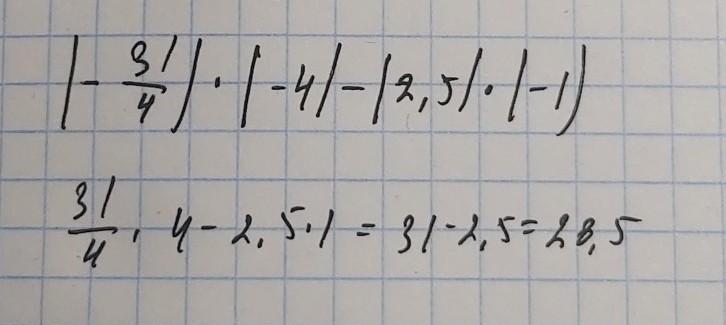 |-31/4|·|-4|-|2,5|·|-1|
31/4·4-2,5·1=31-2,5=28,5